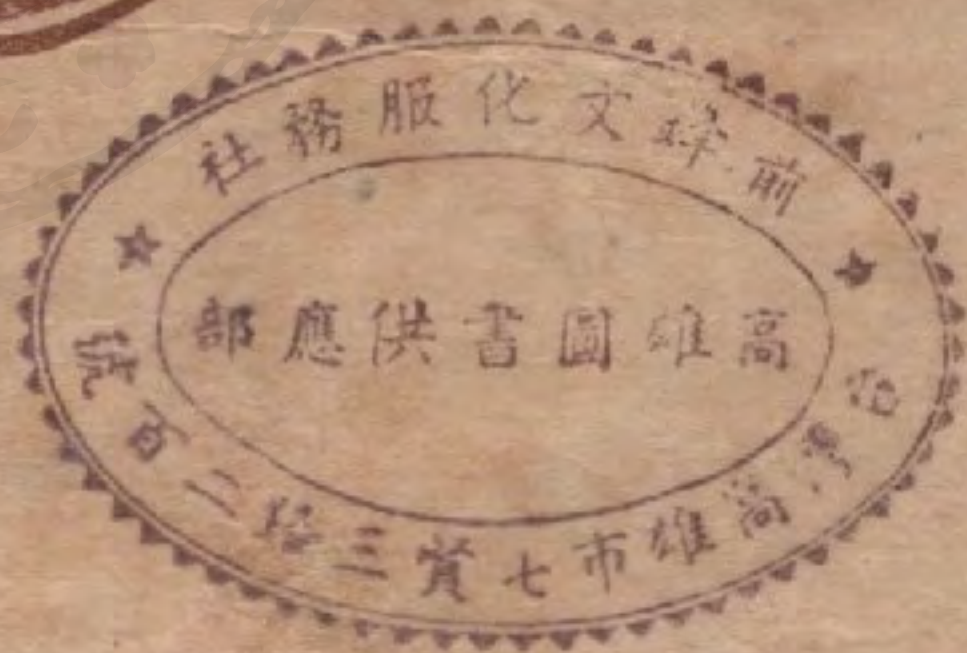 前鋒文化服務社
高雄圖書供應部
台灣高雄市七賢三路二百號